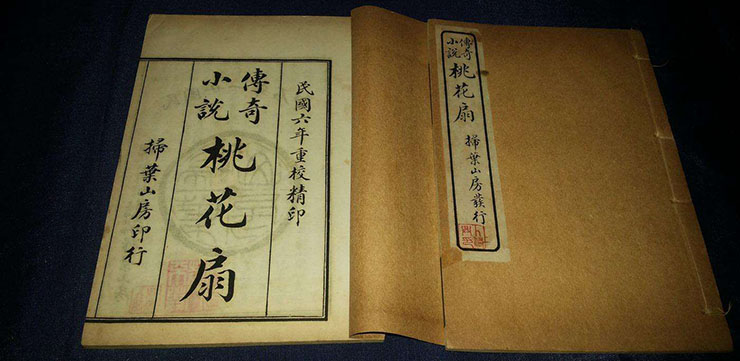 傳奇
小說
桃花扇
掃葉山房發行
民國六年重校精印
傳奇
小說
桃花扇
掃葉山房印行